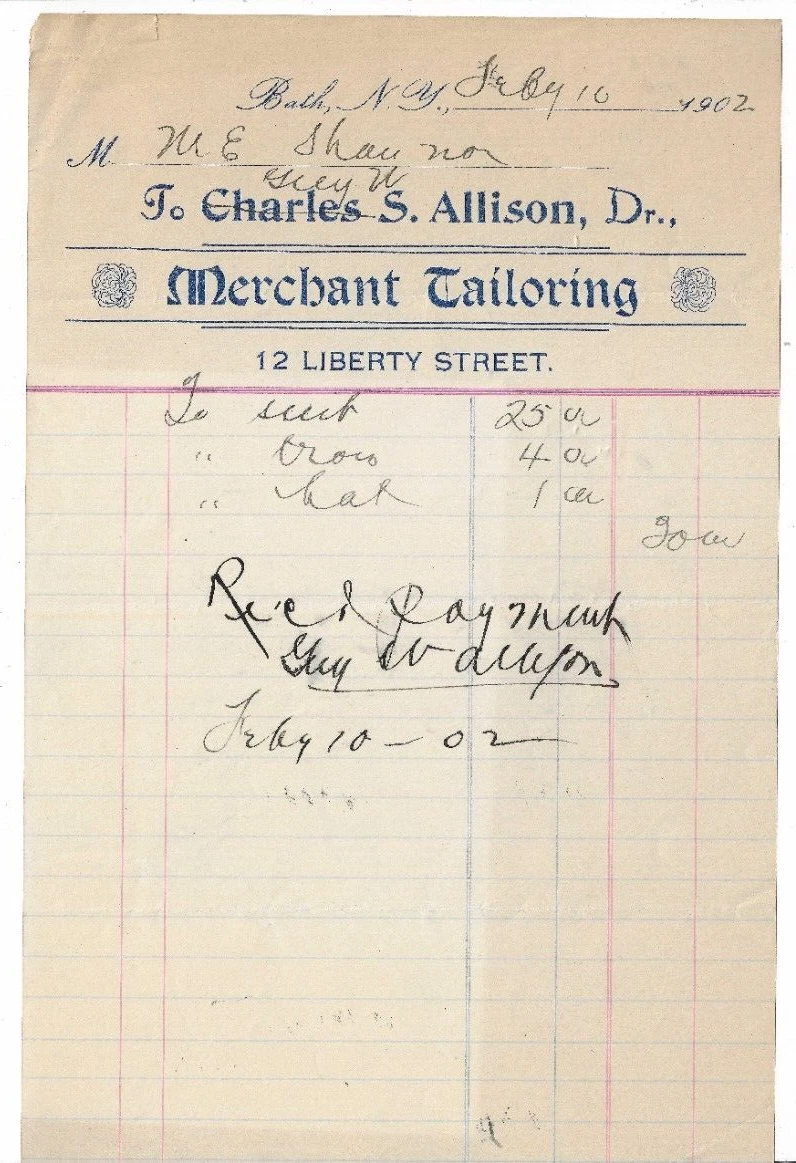 Bath, N.Y., Feby 10 1902
M M E Shannon
Guy W
To Charles S. Allison, Dr.,
Merchant Tailoring
12 LIBERTY STREET.
To suit 25 00
" trow 4 00
" hat 1 00
30 00
Rec'd Payment
Guy W Allison
Feby 10 - 02